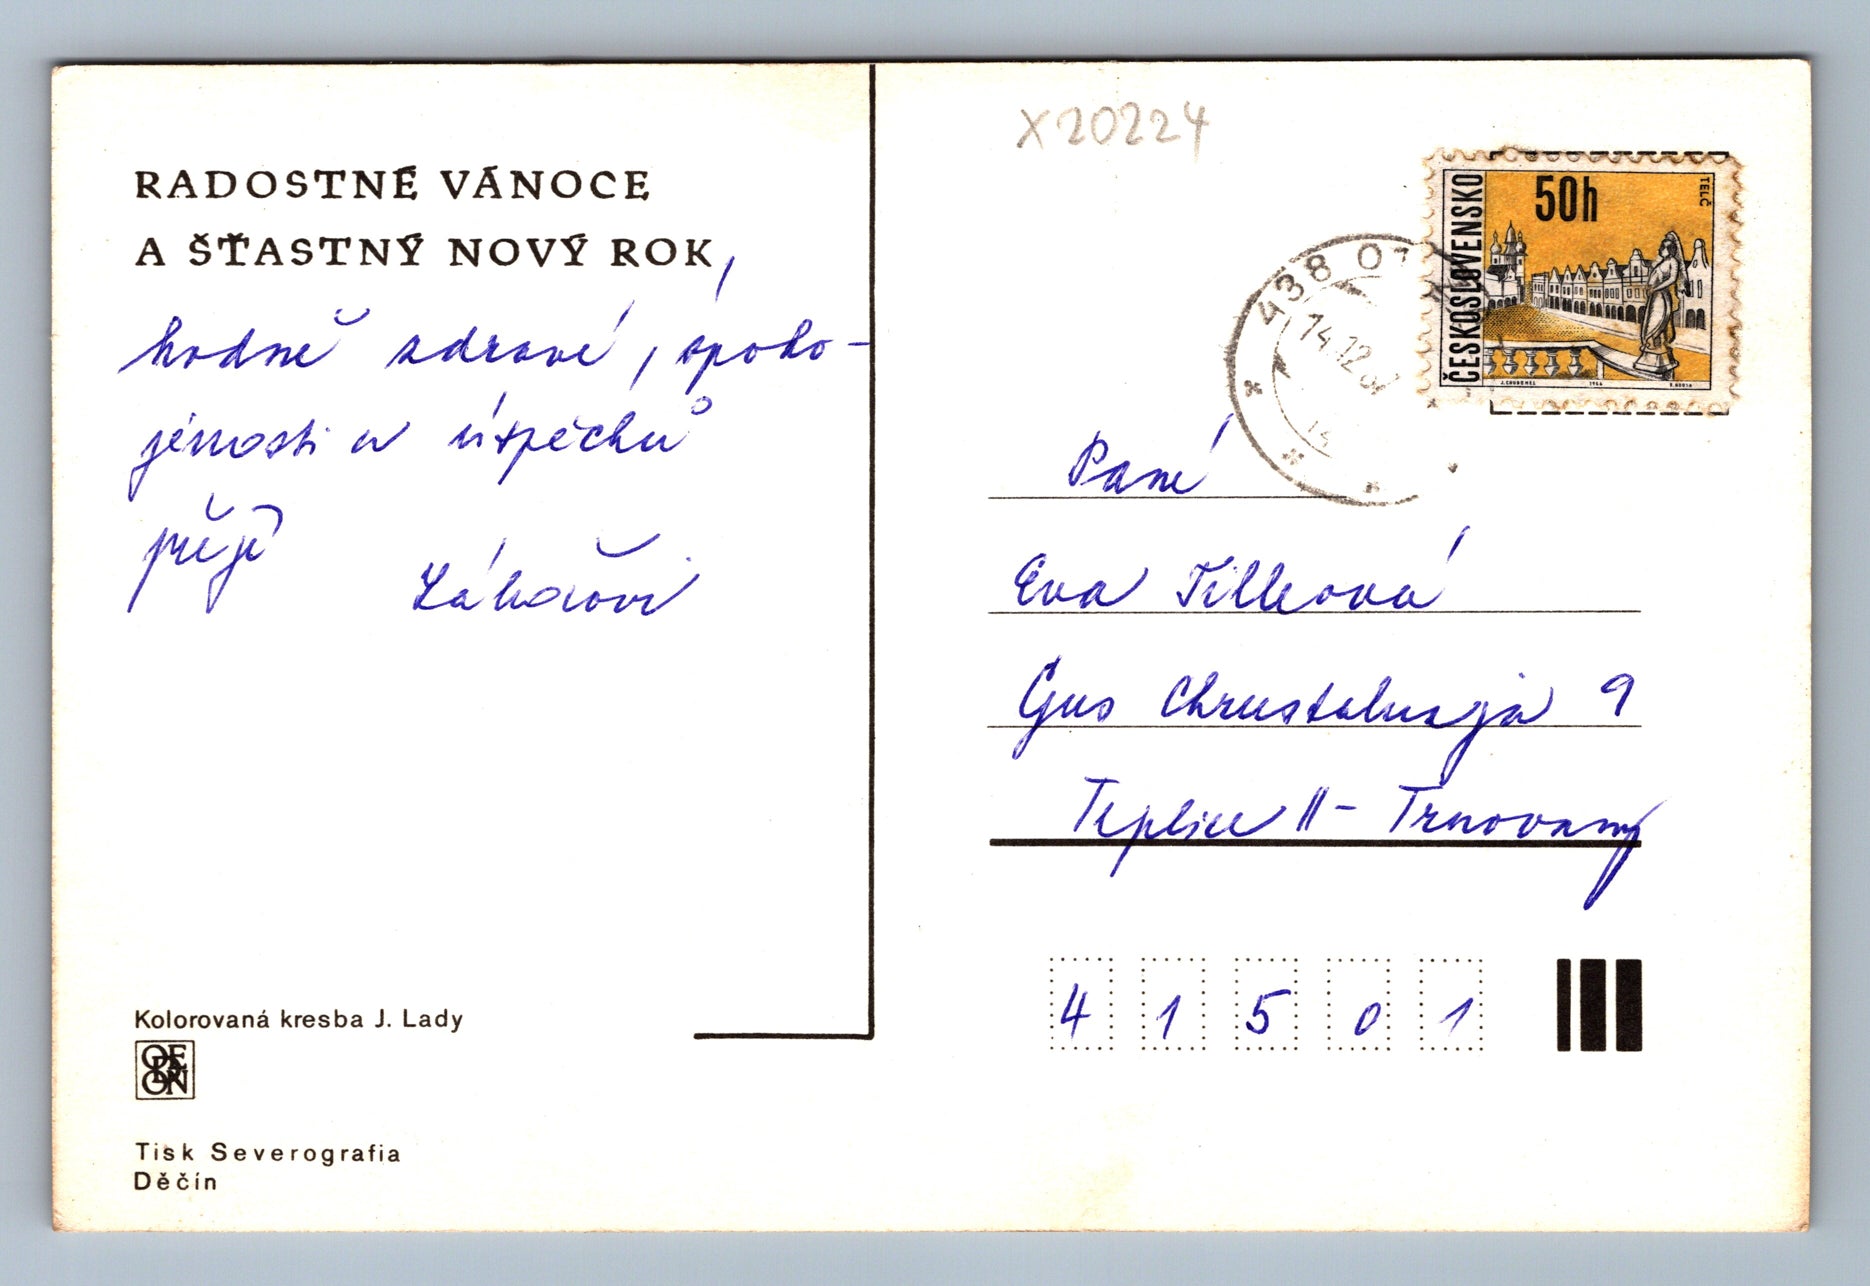 RADOSTNÉ VÁNOCE
A ŠŤASTNÝ NOVÝ ROK,
hodně zdraví, spoko-
jenosti a úspěchů
přejí
Záhořovi
Kolorovaná kresba J. Lady
ODEON
Tisk Severografia
Děčín
X20224
ČESKOSLOVENSKO
50h
TELČ
438 01
14.12.
Paní
Eva Tilleová
Gus Chrustalnaja 9
Teplice II - Trnovany
4 1 5 0 1